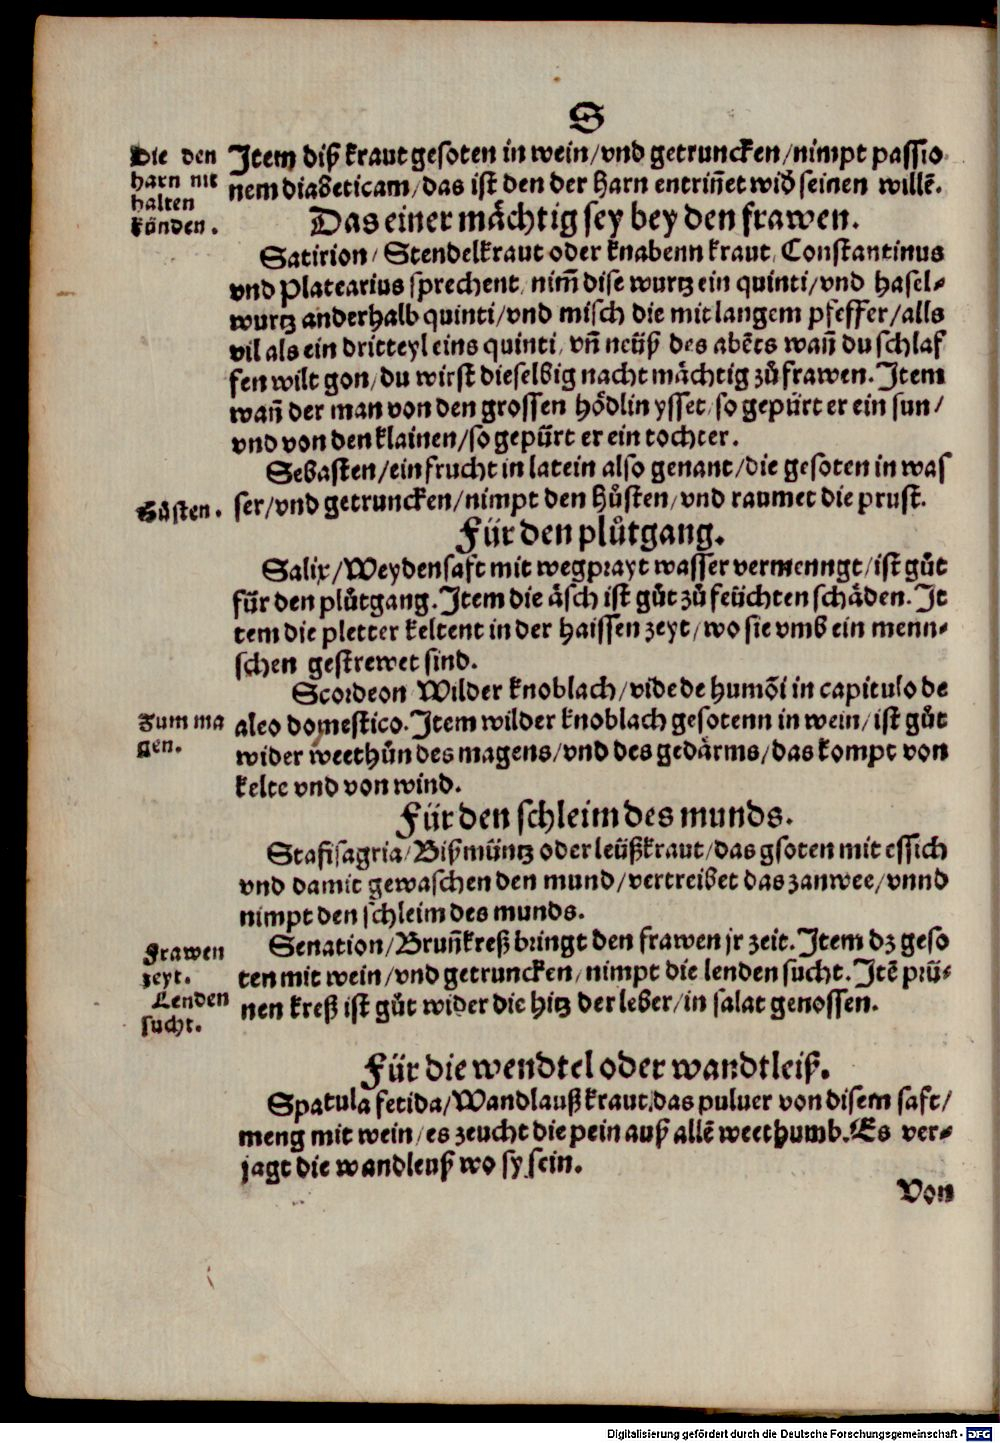 S
Die den
harn nit
halten
könden.
Item diß kraut gesoten in wein/vnd getruncken/nimpt passio
nem diabeticam/das ist den der harn entriñet wid̄ seinen willē.
Das einer mächtig sey bey den frawen.
Satirion/Stendelkraut oder knabenn kraut/Constantinus
vnd Platearius sprechent/nim̄ dise wurtz ein quinti/vnd hasel-
wurtz anderhalb quinti/vnd misch die mit langem pfeffer/alls
vil als ein dritteyl eins quinti/vñ neüß des abēts wañ du schlaf
fen wilt gon/du wirst dieselbig nacht mächtig zů frawen. Item
wañ der man von den grossen hödlin ysset/so gepürt er ein sun/
vnd von den klainen/so gepürt er ein tochter.
Sebasten/ein frucht in latein also genant/die gesoten in was
Hůsten.
ser/vnd getruncken/nimpt den hůsten/vnd raumet die prust.
Für den plůtgang.
Salix/Weydensaft mit wegprayt wasser vermenngt/ist gůt
für den plůtgang. Item die äsch ist gůt zů feüchten schäden. It
tem die pletter keltent in der haissen zeyt/wo sie vmb ein menn-
schen gestrewet sind.
Scordeon Wilder knoblach/vide de humōi in capitulo de
Zum ma
gen.
aleo domestico. Item wilder knoblach gesotenn in wein/ist gůt
wider weethůn des magens/vnd des gedärms/das kompt von
kelte vnd von wind.
Für den schleim des munds.
Stafisagria/Bißmüntz oder leüßkraut/das gsoten mit essich
vnd damit gewaschen den mund/vertreibet das zanwee/vnnd
nimpt den schleim des munds.
Frawen
zeyt.
Lenden
sucht.
Senation/Bruñkreß bringt den frawen jr zeit. Item dz geso
ten mit wein/vnd getruncken/nimpt die lenden sucht. Itē prü-
nen kreß ist gůt wider die hitz der leber/in salat genossen.
Für die wendtel oder wandtleiß.
Spatula fetida/Wandlaußkraut/das puluer von disem saft/
meng mit wein/es zeucht die pein auß allē weethumb. Es ver-
jagt die wandleuß wo sy sein.
Von
Digitalisierung gefördert durch die Deutsche Forschungsgemeinschaft - DFG